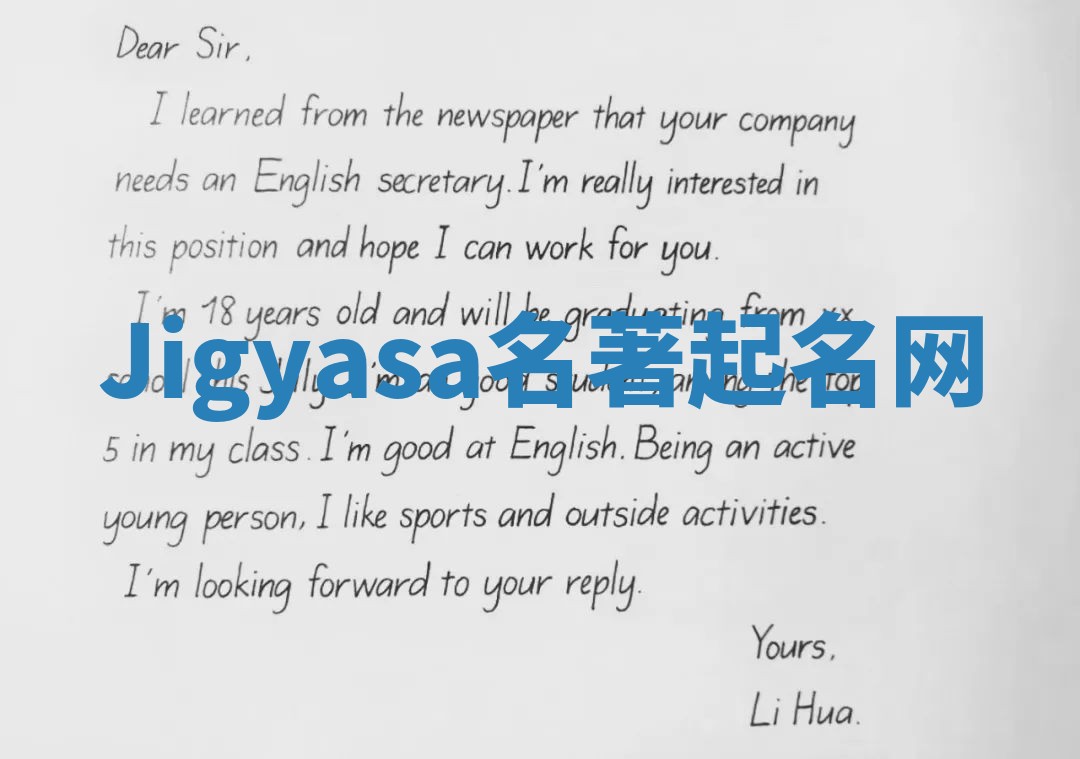 Dear Sir,
I learned from the newspaper that your company
needs an English secretary. I'm really interested in
this position and hope I can work for you.
I'm 18 years old and will be graduating from xx
Jigyasa名著起名网
school this July. I'm a good student, among the top
5 in my class. I'm good at English. Being an active
young person, I like sports and outside activities.
I'm looking forward to your reply.
Yours,
Li Hua.